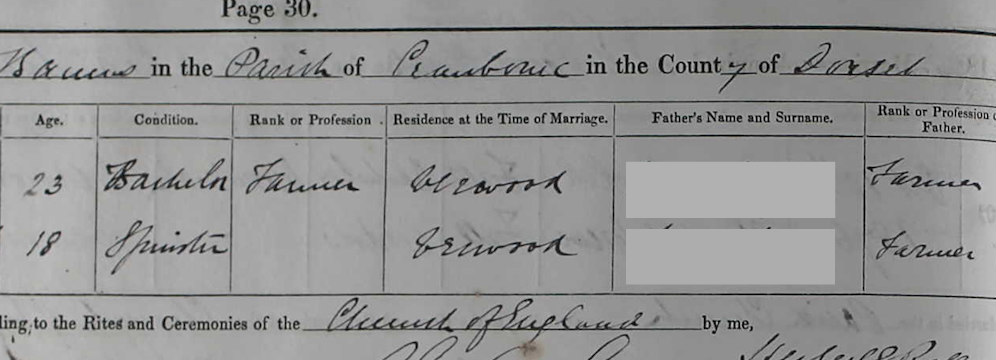 Page 30.
in the Parish of Cranborne in the County of Dorset
Age. Condition. Rank or Profession. Residence at the Time of Marriage. Father's Name and Surname. Rank or Profession
Father.
23 Bachelor Farmer Verwood Farmer
18 Spinster Verwood Farmer
to the Rites and Ceremonies of the Church of England by me,